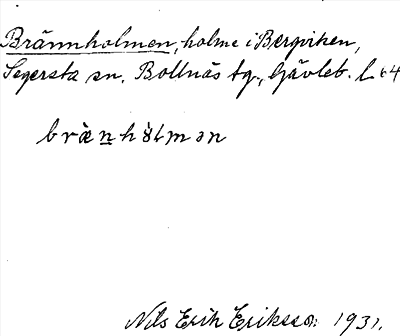 Brännholmen, holme i Bergviken,
Segersta sn. Bollnäs tg., Gävleb. L. 64
bræ̀nhòlmən
Nils Erik Eriksson 1931.